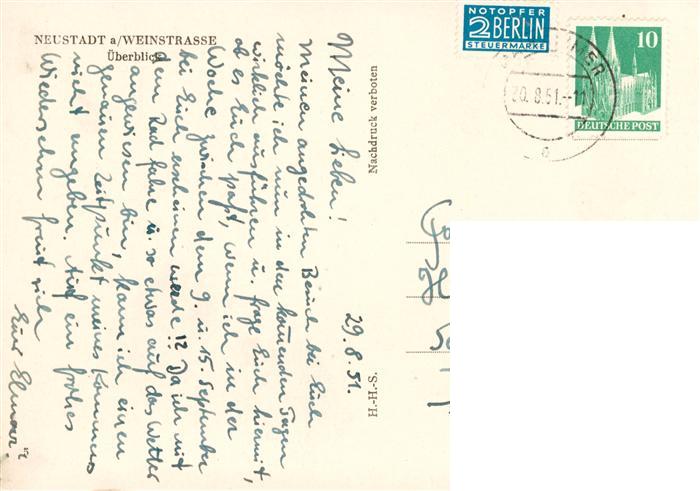 NEUSTADT a/WEINSTRASSE
Überblick
NOTOPFER
2 BERLIN
STEUERMARKE
10
DEUTSCHE POST
30.8.51.-11
a
29.8.51.
Meine Lieben!
Meinen angedrohten Besuch bei Euch
möchte ich nun in den kommenden Tagen
wirklich ausführen u. frage Euch hiermit,
ob es Euch paßt, wenn ich in der
Woche zwischen dem 9. u. 15. September
bei Euch erscheinen werde!? Da ich mit
dem Rad fahre u. so etwas auf das Wetter
angewiesen bin, kann ich einen
genauen Zeitpunkt meines Kommens
nicht angeben. Auf ein frohes
Wiedersehen freut sich
Euer Elmar.
Nachdruck verboten
H.-H.-S.